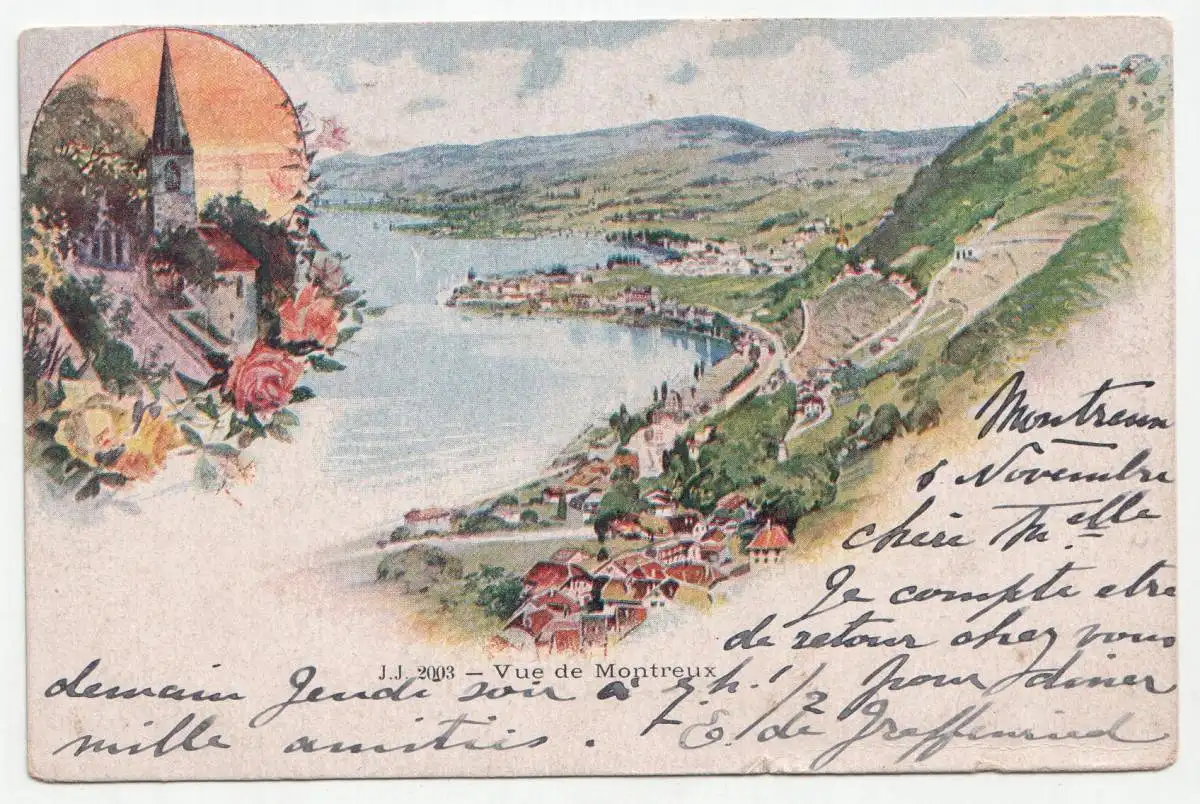 Montreux
8 Novembre
chère Melle
Je compte etre
de retour chez vous
J.J. 2003 – Vue de Montreux
demain Jeudi soir à 7.h. 1/2 pour diner
mille amitiés. E. de Graffenried